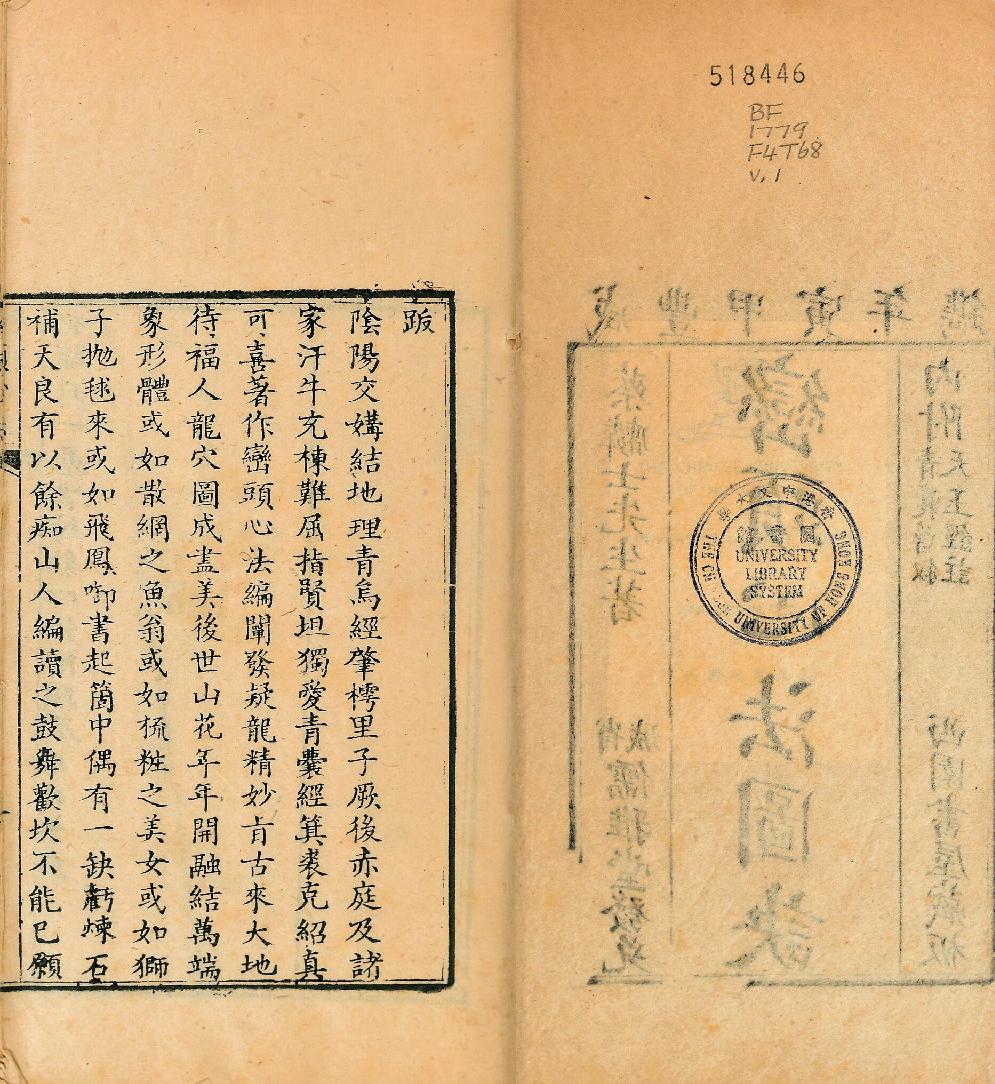 518446
BF
1779
F4T68
v.1
咸豐甲寅年鐫
內附天玉
西園書屋藏板
巒頭心法圖訣
蔡麟士先生著
成省儒雅堂發兌
香港中文大學
圖書館
THE CHINESE UNIVERSITY OF HONG KONG
UNIVERSITY
LIBRARY
SYSTEM
跋
陰陽交媾結地理青烏經肇樗里子厥後赤庭及諸
家汗牛充棟難屈指賢坦獨愛青囊經箕裘克紹真
可喜著作巒頭心法編闡發疑龍精妙肯古來大地
待福人龍穴圖成盡美後世山花年年開融結萬端
象形體或如散網之魚翁或如梳粧之美女或如獅
子拋毬來或如飛鳳啣書起箇中偶有一缺虧煉石
補天良有以餘痴山人編讀之鼓舞歡坎不能已願